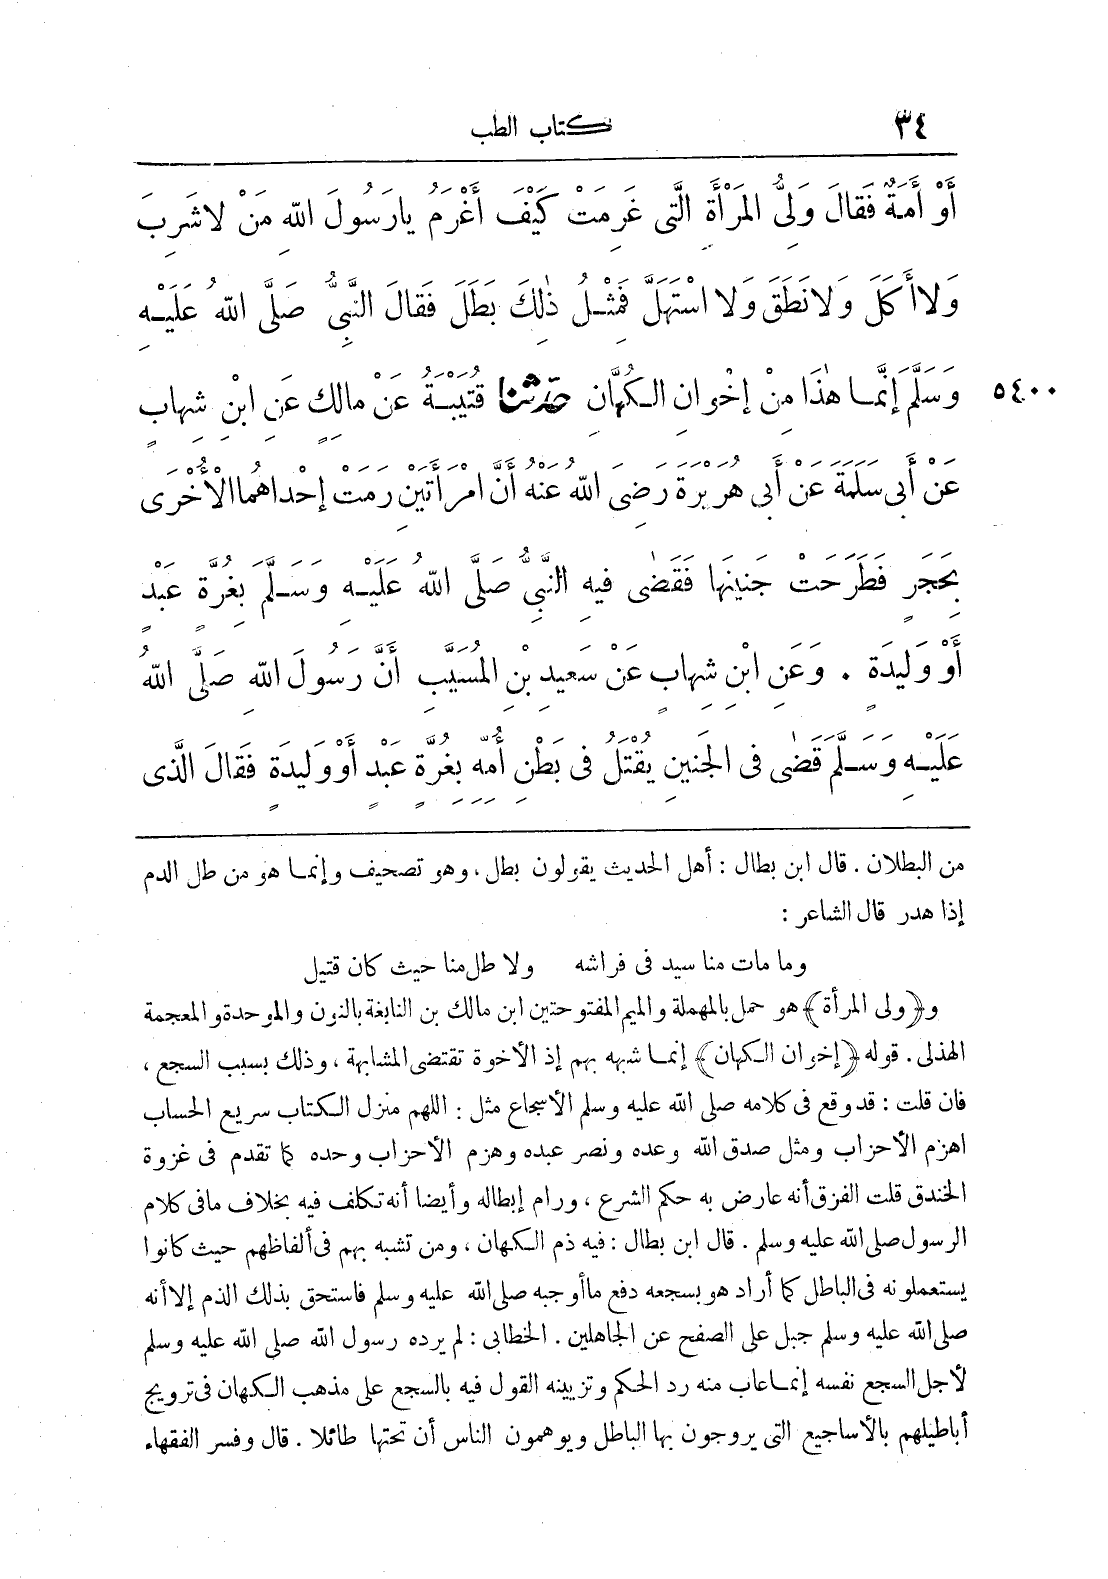 ٣٤ كتاب الطب
أَوْ أَمَةٌ فَقَالَ وَلِيُّ المَرْأَةِ الَّتِى غَرِمَتْ كَيْفَ أَغْرَمُ يارَسُولَ اللهِ مَنْ لاشَرِبَ
وَلا أَكَلَ وَلا نَطَقَ وَلا اسْتَهَلَّ فَمِثْلُ ذٰلِكَ بَطَلَ فَقَالَ النَّبِىُّ صَلَّى اللهُ عَلَيْهِ
وَسَلَّمَ إِنَّمَا هٰذَا مِنْ إِخْوانِ الكُهَّانِ حَدَّثَنَا قُتَيْبَةُ عَنْ مالِكٍ عَنِ ابْنِ شِهابٍ ٥٤٠٠
عَنْ أَبِى سَلَمَةَ عَنْ أَبِى هُرَيْرَةَ رَضِىَ اللهُ عَنْهُ أَنَّ امْرَأَتَيْنِ رَمَتْ إِحْداهُما الأُخْرَى
بِحَجَرٍ فَطَرَحَتْ جَنِينَها فَقَضٰى فِيهِ النَّبِىُّ صَلَّى اللهُ عَلَيْهِ وَسَلَّمَ بِغُرَّةٍ عَبْدٍ
أَوْ وَلِيدَةٍ . وَعَنِ ابْنِ شِهابٍ عَنْ سَعِيدِ بْنِ المُسَيَّبِ أَنَّ رَسُولَ اللهِ صَلَّى اللهُ
عَلَيْهِ وَسَلَّمَ قَضٰى فِى الجَنِينِ يُقْتَلُ فِى بَطْنِ أُمِّهِ بِغُرَّةٍ عَبْدٍ أَوْ وَلِيدَةٍ فَقَالَ الَّذِى
من البطلان . قال ابن بطال : أهل الحديث يقولون بطل ، وهو تصحيف وإنما هو من طل الدم
إذا هدر قال الشاعر :
وما مات منا سيد فى فراشه ولا طل منا حيث كان قتيل
و﴿ولى المرأة﴾ هو حمل بالمهملة والميم المفتوحتين ابن مالك بن النابغة بالنون والموحدة والمعجمة
الهذلى . قوله ﴿إخوان الكهان﴾ إنما شبهه بهم إذ الأخوة تقتضى المشابهة ، وذلك بسبب السجع ،
فان قلت : قد وقع فى كلامه صلى الله عليه وسلم الأسجاع مثل : اللهم منزل الكتاب سريع الحساب
اهزم الأحزاب ومثل صدق الله وعده ونصر عبده وهزم الأحزاب وحده كما تقدم فى غزوة
الخندق قلت الفرق أنه عارض به حكم الشرع ، ورام إبطاله وأيضا أنه تكلف فيه بخلاف مافى كلام
الرسول صلى الله عليه وسلم . قال ابن بطال : فيه ذم الكهان ، ومن تشبه بهم فى ألفاظهم حيث كانوا
يستعملونه فى الباطل كما أراد هو بسجعه دفع ما أوجبه صلى الله عليه وسلم فاستحق بذلك الذم إلا أنه
صلى الله عليه وسلم جبل على الصفح عن الجاهلين . الخطابى : لم يرده رسول الله صلى الله عليه وسلم
لأجل السجع نفسه إنما عاب منه رد الحكم وتزيينه القول فيه بالسجع على مذهب الكهان فى ترويج
أباطيلهم بالأساجيع التى يروجون بها الباطل ويوهمون الناس أن تحتها طائلا . قال وفسر الفقهاء